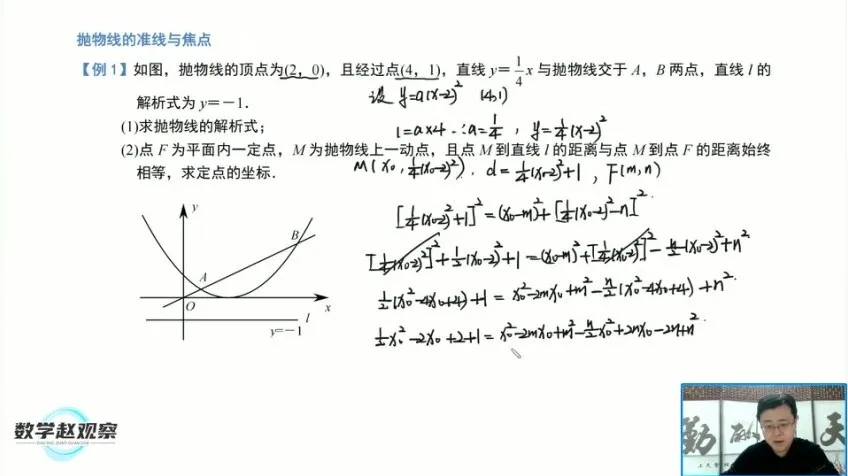 抛物线的准线与焦点
【例1】如图，抛物线的顶点为(2，0)，且经过点(4，1)，直线 y＝1/4x 与抛物线交于 A，B 两点，直线 l 的
解析式为 y＝－1．
设 y=a(x-2)² (4,1)
(1)求抛物线的解析式；
1=a×4 ∴a=1/4 , y=1/4(x-2)²
(2)点 F 为平面内一定点，M 为抛物线上一动点，且点 M 到直线 l 的距离与点 M 到点 F 的距离始终
相等，求定点的坐标．
M(x₀, 1/4(x₀-2)²). d=1/4(x₀-2)²+1 , F(m,n)
[1/4(x₀-2)²+1]²=(x₀-m)²+[1/4(x₀-2)²-n]²
[1/4(x₀-2)²]²+1/2(x₀-2)²+1=(x₀-m)²+[1/4(x₀-2)²]²-n/2(x₀-2)²+n²
1/2(x₀²-4x₀+4)+1=x₀²-2mx₀+m²-n/2(x₀²-4x₀+4)+n²
1/2x₀²-2x₀+2+1=x₀²-2mx₀+m²-n/2x₀²+2nx₀-2n+n²
y
B
A
O
x
l
y=－1
数学赵观察
勤
天